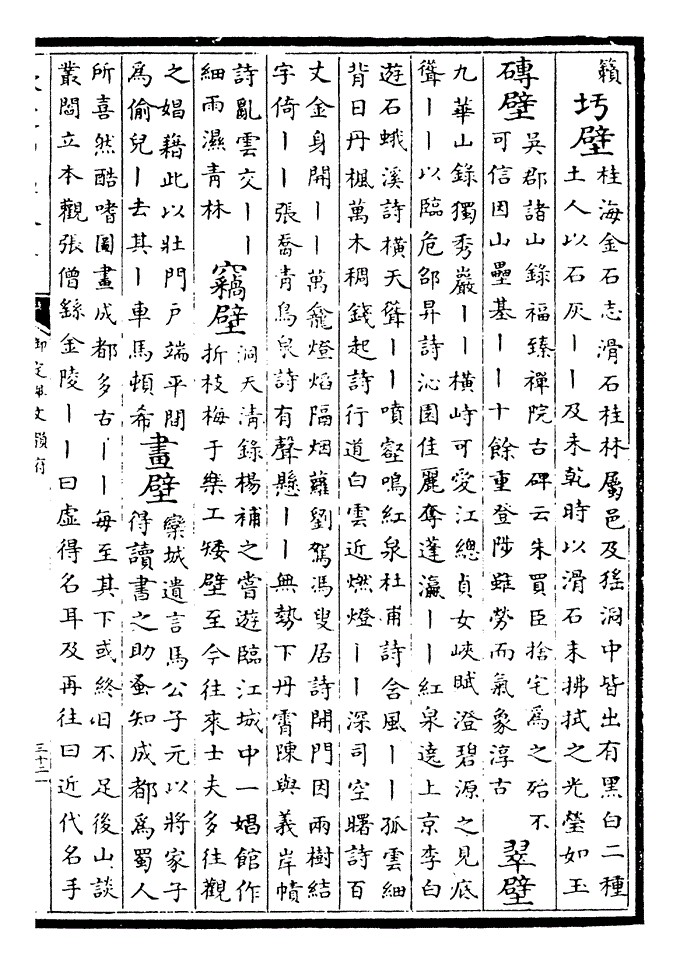 籟
圬壁
桂海金石志滑石桂林屬邑及猺洞中皆出有黑白二種
土人以石灰丨丨及未乾時以滑石末拂拭之光瑩如玉
磚壁
吳郡諸山錄福臻禪院古碑云朱買臣捨宅為之殆不
可信因山壘基丨丨十餘重登陟雖勞而氣象淳古
翠壁
九華山錄獨秀巖丨丨橫峙可愛江總貞女峽賦澄碧源之見底
聳丨丨以臨危邵昇詩沁園佳麗奪蓬瀛丨丨紅泉遶上京李白
遊石蛾溪詩橫天聳丨丨噴壑鳴紅泉杜甫詩含風丨丨孤雲細
背日丹楓萬木稠錢起詩行道白雲近燃燈丨丨深司空曙詩百
丈金身開丨丨萬龕燈焰隔烟蘿劉駕馮叟居詩開門因兩樹結
宇倚丨丨張喬青鳥泉詩有聲懸丨丨無勢下丹霄陳與義岸幘
詩亂雲交丨丨
細雨濕青林
竊壁
洞天清錄楊補之嘗遊臨江城中一娼館作
折枝梅于樂工矮壁至今往來士夫多往觀
之娼藉此以壯門戶端平間
為偷兒丨去其丨車馬頓希
畫壁
欒城遺言馬公子元以將家子
得讀書之助蚤知成都為蜀人
所喜然酷嗜圖畫成都多古丨丨每至其下或終日不足後山談
叢閻立本觀張僧繇金陵丨丨曰虛得名耳及再往曰近代名手
御定佩文韻府
三十二